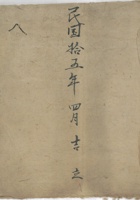 民国拾五年四月吉立
八